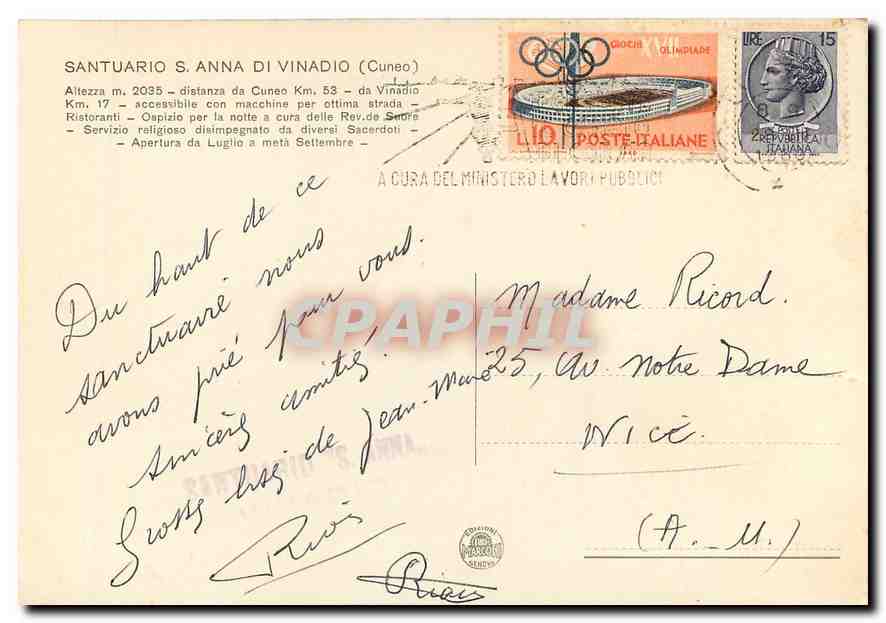 SANTUARIO S. ANNA DI VINADIO (Cuneo)
Altezza m. 2035 - distanza da Cuneo Km. 53 - da Vinadio
Km. 17 - accessibile con macchine per ottima strada -
Ristoranti - Ospizio per la notte a cura delle Rev.de Suore
- Servizio religioso disimpegnato da diversi Sacerdoti -
- Apertura da Luglio a metà Settembre -
GIOCHI XVII OLIMPIADE
L.10 POSTE-ITALIANE
LIRE 15
REPUBBLICA
ITALIANA
A CURA DEL MINISTERO LAVORI PUBBLICI
Du haut de ce
sanctuaire nous
avons prié pour vous.
Sincères amitiés!
Gros bises de Jean-Marc
Madame Ricord.
25, Av. Notre Dame
NICE.
(A.-M.)
SANTUARIO "S. ANNA"
CPAPHIL
EDIZIONI
MARCONI
GENOVA